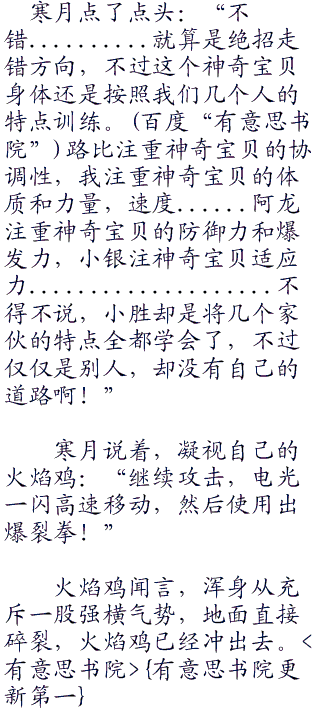 寒月点了点头：“不
错..........就算是绝招走
错方向，不过这个神奇宝贝
身体还是按照我们几个人的
特点训练。(百度“有意思书
院”)路比注重神奇宝贝的协
调性，我注重神奇宝贝的体
质和力量，速度......阿龙
注重神奇宝贝的防御力和爆
发力，小银注神奇宝贝适应
力....................不
得不说，小胜却是将几个家
伙的特点全都学会了，不过
仅仅是别人，却没有自己的
道路啊！”
寒月说着，凝视自己的
火焰鸡：“继续攻击，电光
一闪高速移动，然后使用出
爆裂拳！”
火焰鸡闻言，浑身从充
斥一股强横气势，地面直接
碎裂，火焰鸡已经冲出去。<
有意思书院>{有意思书院更
新第一}